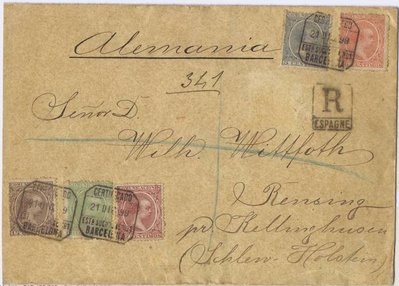 Alemania
CERTIFICADO
21 DIC 98
BARCELONA
341
R
ESPAGNE
Señor D.
Wilh. Wittfoth
Rensing
pr. Kellinghusen
(Schlesw-Holstein)
CERTIFICADO
21 DIC 98
BARCELONA